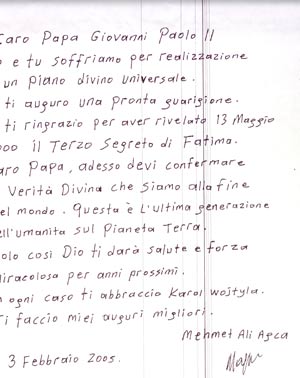 Caro Papa Giovanni Paolo II
o e tu soffriamo per realizzazione
un piano divino universale.
ti auguro una pronta guarigione.
ti ringrazio per aver rivelato 13 Maggio
000 il Terzo Segreto di Fatima.
aro Papa, adesso devi confermare
Verità Divina che siamo alla fine
el mondo. Questa è L'ultima generazione
ell'Umanità sul Pianeta Terra.
olo così Dio ti darà salute e forza
miracolosa per anni prossimi.
n ogni caso ti abbraccio Karol Wojtyla.
Ti faccio miei auguri migliori.
Mehmet Ali Agca
3 Febbraio 2005.